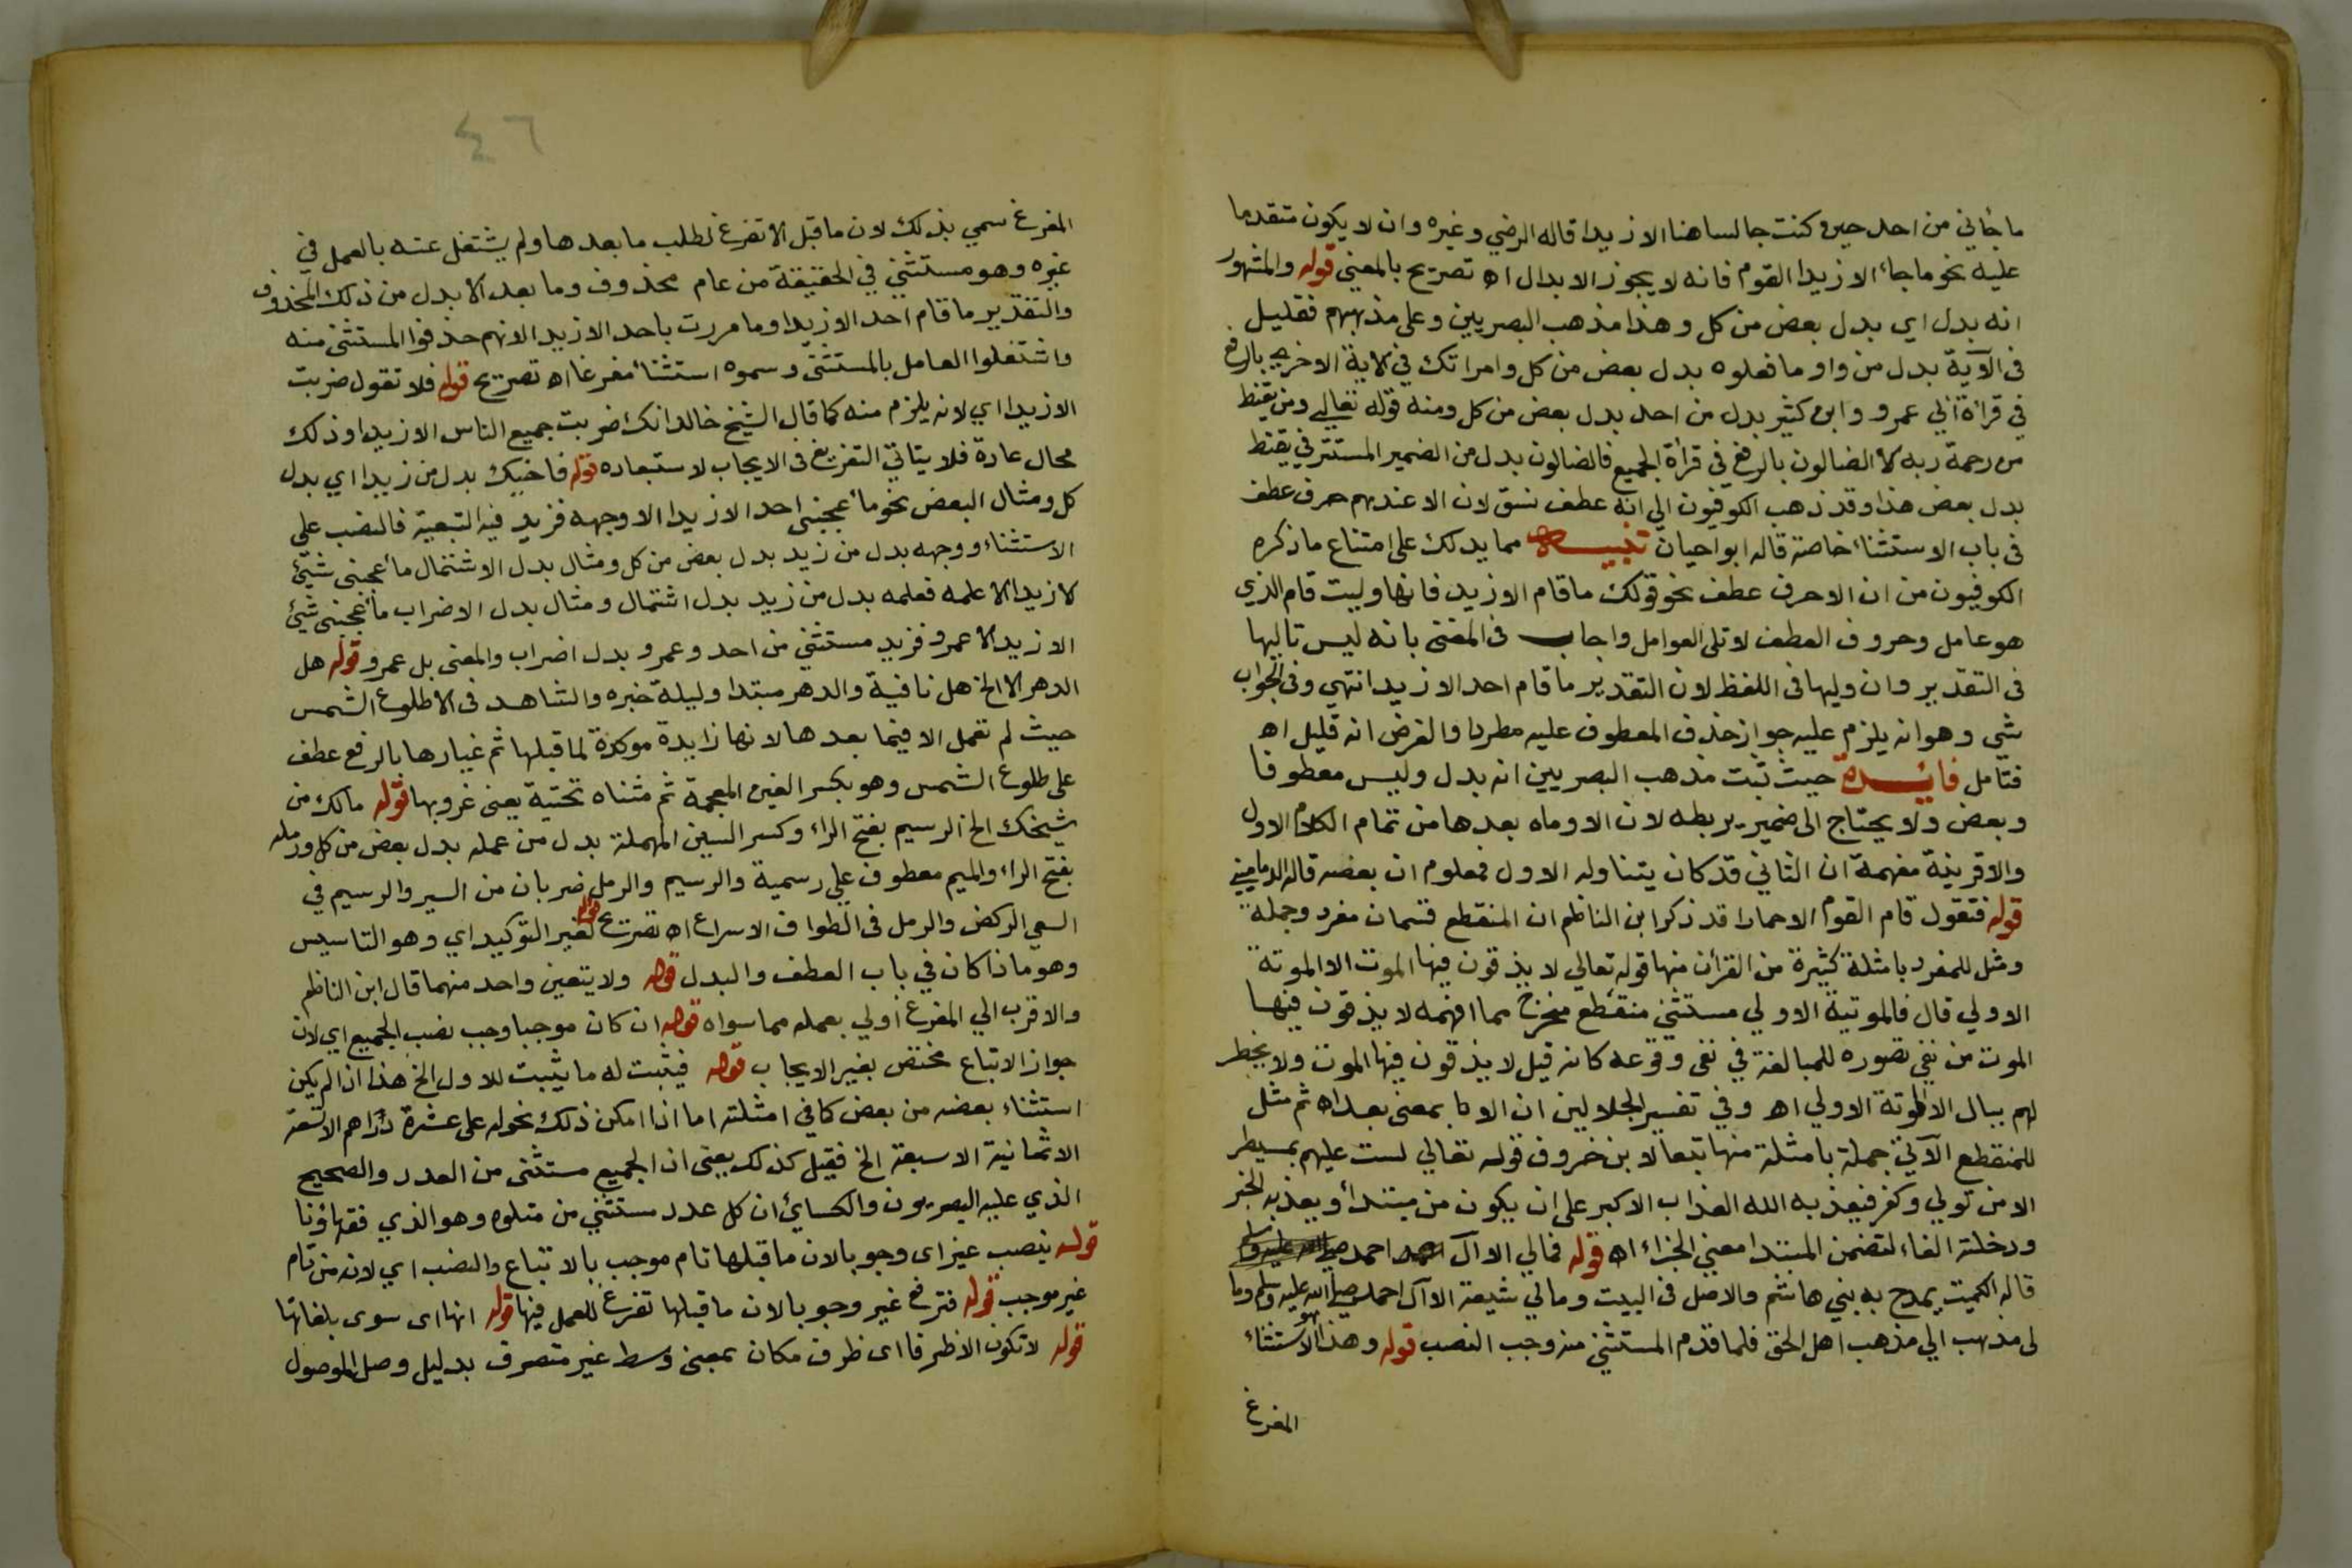 ما جاني من احد حين كنت جالسا هنا الا زيدا قاله الرضي وغيره وان لا يكون متقدما
عليه نحو ما جاء الا زيدا القوم فانه لا يجوز الابدال اه تصريح بالمعني قوله والمشهور
انه بدل اي بدل بعض من كل وهذا مذهب البصريين وعلى مذهبهم فقليل
في الآية بدل من واو ما فعلوه بدل بعض من كل وامراتك في الاية الاخري بالرفع
في قراة ابي عمرو وابن كثير بدل من احد بدل بعض من كل ومنه قوله تعالي ومن يقنط
من رحمة ربه الا الضالون بالرفع في قراة الجميع فالضالون بدل من الضمير المستتر في يقنط
بدل بعض هذا وقد ذهب الكوفيون الي انه عطف نسق لان الا عندهم حرف عطف
في باب الاستثناء خاصة قاله ابو احيان تنبيه مما يدلك على امتناع ما ذكره
الكوفيون من ان الا حرف عطف نحو قولك ما قام الا زيد فانها وليت قام الذي
هو عامل وحروف العطف لا تلى العوامل واجاب في المغنى بانه ليس تاليها
في التقدير وان وليها في اللفظ لان التقدير ما قام احد الا زيد انتهي وفى الجواب
شي وهو انه يلزم عليه جواز حذف المعطوف عليه مطردا والغرض انه قليل اه
فتامل فائدة حيث ثبت مذهب البصريين انه بدل وليس معطوفا
وبعض ولا يحتاج الى ضمير يربطه لان الا وماه بعدها من تمام الكلام الاول
والا قرينة مفهمة ان الثاني قد كان يتناوله الاول فمعلوم ان بعضه قاله الدماميني
قوله فتقول قام القوم الا حمارا قد ذكر ابن الناظم ان المنقطع قسمان مفرد وجملة
ومثل للمفرد بامثلة كثيرة من القرأن منها قوله تعالي لا يذقون فيها الموت الا الموتة
الاولي قال فالموتية الاولي مستثنى منقطع مخرج مما افهمه لا يذقون فيها
الموت من نفي تصوره للمبالغة في نفى وقوعه كانه قيل لا يذقون فيها الموت ولا يخطر
لهم ببال الا الموتة الاولي اه وفي تفسير الجلالين ان الا بمعنى بعد اه ثم مثل
للمنقطع الآتي جملة بامثلة منها تبعا لابن خروف قوله تعالي لست عليهم بمسيطر
الا من تولي وكفر فيعذبه الله العذاب الاكبر على ان يكون من مبتدأ ويعذبه الخبر
ودخلته الفاء لتضمن المبتدا معني الجزاء اه قوله فمالي الا ال احمد
قاله الكميت يمدح به بني هاشم والاصل في البيت ومالي شيعة الا آل احمد صلي الله عليه وسلم وما
لى مذهب الي مذهب اهل الحق فلما قدم المستثني منه وجب النصب قوله وهذا الاستثناء
المفرغ
٤٦
المفرغ سمي بذلك لان ما قبل الا تفرغ لطلب ما بعدها ولم يشتغل عنه بالعمل في
غيره وهو مستثني في الحقيقة من عام محذوف وما بعد الا بدل من ذلك المحذوف
والتقدير ما قام احد الا زيدا وما مررت باحد الا زيد الا انهم حذفوا المستثنى منه
واشتغلوا العامل بالمستثنى وسموه استثناء مفرغا اه تصريح قوله فلا تقول ضربت
الا زيدا اي لانه يلزم منه كما قال الشيخ خالد انك ضربت جميع الناس الا زيدا وذلك
محال عادة فلا يتاتي التفريغ فى الايجاب لاستبعاده قوله فاخيك بدل من زيدا اي بدل
كل ومثال البعض نحو ما اعجبني احد الا زيدا الا وجهه فزيد فيه التبعية فالنصب على
الاستثناء ووجهه بدل من زيد بدل بعض من كل ومثال بدل الاشتمال ما أعجبنى شيئ
الا زيد الا علمه فعلمه بدل من زيد بدل اشتمال ومثال بدل الاضراب ما أعجبنى شيئ
الا زيد الا عمرو فزيد مستثني من احد وعمرو بدل اضراب والمعنى بل عمرو قوله هل
الدهر الا الخ هل نافية والدهر مبتدا وليلة خبره والشاهد فى الا طلوع الشمس
حيث لم تعمل الا فيما بعدها لانها زايدة موكدة لما قبلها ثم غيارها بالرفع عطف
على طلوع الشمس وهو بكسر الغين المعجمة ثم مثناه تحتية يعنى غروبها قوله مالك من
شيخك الخ الرسيم بفتح الراء وكسر السين المهملة بدل من عمله بدل بعض من كل ورمله
بفتح الراء والميم معطوف علي رسمية والرسيم والرمل ضربان من السير والرسيم في
السعي الركض والرمل فى الطواف الاسراع اه تصريح قوله لغير التوكيد اي وهو التاسيس
وهو ماذا كان في باب العطف والبدل قوله ولا يتعين واحد منهما قال ابن الناظم
والاقرب الي المفرغ اولي بعمله مما سواه قوله ان كان موجبا وجب نصب الجميع اي لان
جواز الاتباع مختص بغير الايجاب قوله فيثبت له ما يثبت للاول الخ هذا ان لم يكن
استثناء بعضه من بعض كما في امثلته اما اذا امكن ذلك نحو له على عشرة دراهم الا تسعة
الا ثمانية الا سبعة الخ فقيل كذلك يعنى ان الجميع مستثنى من العدد والصحيح
الذي عليه البصريون والكسائ ان كل عدد مستثني من متلوه وهو الذي فقهاؤنا
قوله ينصب غير اى وجوبا لان ما قبلها تام موجب بالاتباع والنصب اي لانه من تام
غير موجب قوله فترفع غير وجوبا لان ما قبلها تفرغ للعمل فيها قوله انها اى سوى بلغاتها
قوله لا تكون الا ظرفا اى ظرف مكان بمعنى وسط غير متصرف بدليل وصل الموصول